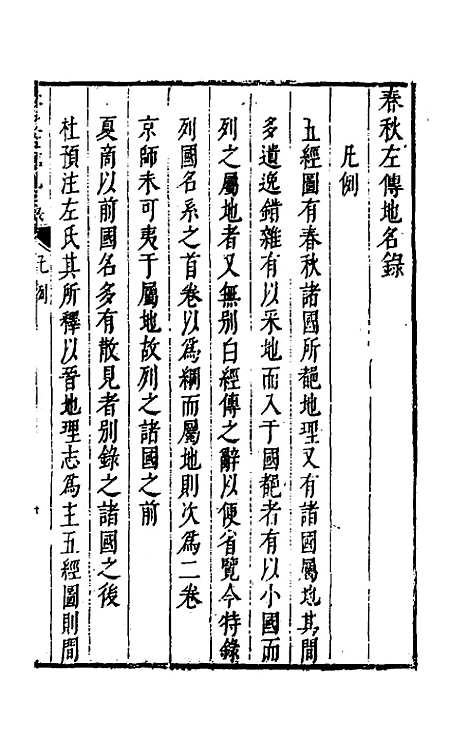 春秋左傳地名錄
凡例
五經圖有春秋諸國所都地理又有諸國屬地其間
多遺逸錯雜有以采地而入于國都者有以小國而
列之屬地者又無別白經傳之辭以便省覽今特錄
列國名系之首卷以為綱而屬地則次為二卷
京師未可夷于屬地故列之諸國之前
夏商以前國名多有散見者別錄之諸國之後
杜預注左氏其所釋以晉地理志為主五經圖則間
凡例